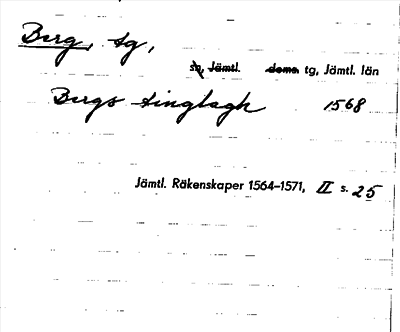 Berg, tg,
sn, Jämtl. doms. tg, Jämtl. län
Bergs tinglagh 1568
Jämtl. Räkenskaper 1564–1571, II s. 25